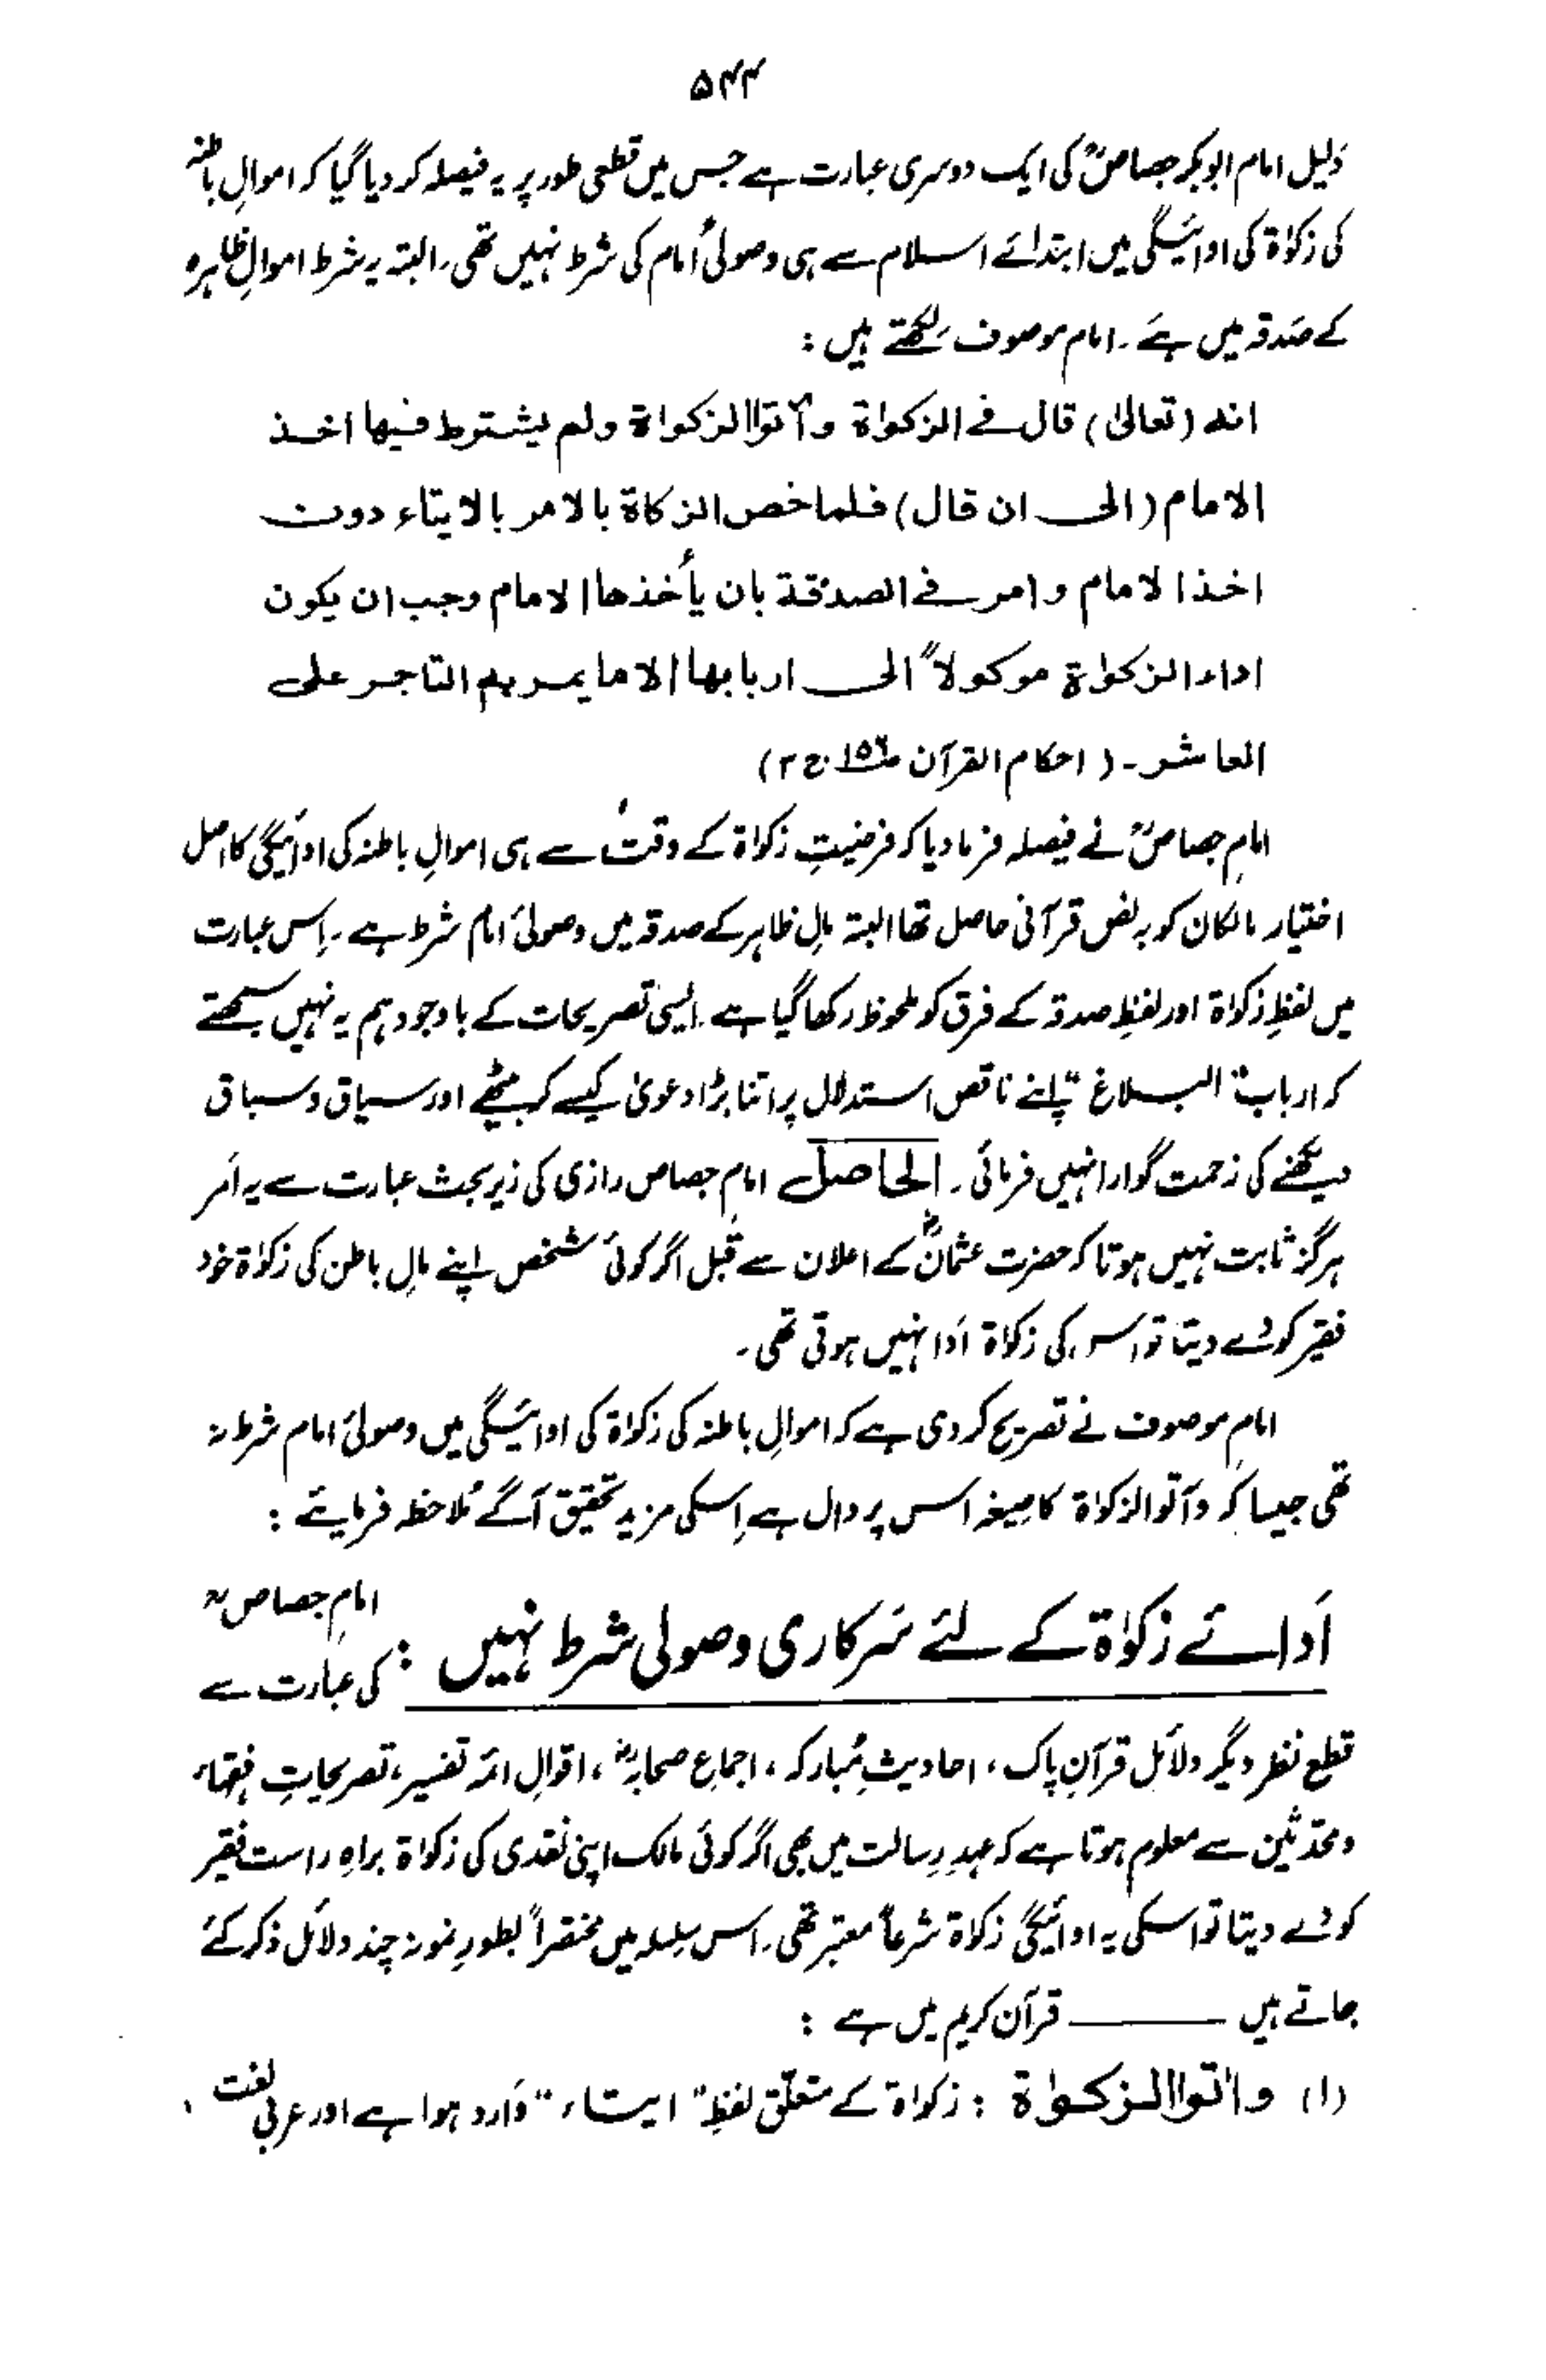 ۵۴۴
دلیل امام ابوبکر جصاصؒ کی ایک دوسری عبارت ہے جس میں قطعی طور پر یہ فیصلہ کر دیا گیا کہ اموالِ باطنہ
کی زکوٰۃ کی ادائیگی میں ابتدائے اسلام سے ہی وصولئ امام کی شرط نہیں تھی۔ البتہ یہ شرط اموالِ ظاہرہ
کے صَدقہ میں ہے۔ امام موصوف لکھتے ہیں :
انه (تعالىٰ) قال فے الزكواة وآتوا الزكواة ولم يشترط فيها اخذ
الامام (الى ان قال) فلما خص الزكاة بالامر بالايتاء دون
اخذ الامام وامر فے الصدقة بان يأخذها الامام وجب ان يكون
اداء الزكوٰة موكولاً الى اربابها الا ما يمر بهم التاجر على
العاشر۔ (احکام القرآن صـ۱۵۶ ج ۳)
امامِ جصاصؒ نے فیصلہ فرما دیا کہ فرضیتِ زکواۃ کے وقت سے ہی اموالِ باطنہ کی ادائیگی کا اصل
اختیار مالکان کو بہ نص قرآنی حاصل تھا البتہ مالِ ظاہر کے صدقہ میں وصولئ امام شرط ہے۔ اِس عبارت
میں لفظِ زکواۃ اور لفظِ صدقہ کے فرق کو ملحوظ رکھا گیا ہے۔ ایسی تصریحات کے باوجود ہم یہ نہیں سمجھتے
کہ ارباب "البلاغ" اپنے ناقص استدلال پر اتنا بڑا دعویٰ کیسے کر بیٹھے اور سیاق و سباق
دیکھنے کی زحمت گوارا نہیں فرمائی۔ الحاصل امامِ جصاص رازی کی زیر بحث عبارت سے یہ اَمر
ہرگز ثابت نہیں ہوتا کہ حضرت عثمانؓ کے اعلان سے قبل اگر کوئی شخص اپنے مالِ باطن کی زکوٰۃ خود
فقیر کو دے دیتا تو اس کی زکوٰۃ اَدا نہیں ہوتی تھی۔
امامِ موصوف نے تصریح کر دی ہے کہ اموالِ باطنہ کی زکواۃ کی ادائیگی میں وصولئ امام شرط نہ
تھی جیسا کہ وآتوا الزکواۃ کا صیغہ اس پر دال ہے اِسکی مزید تحقیق آگے مُلاحظہ فرمایئے :
اَدائے زکوٰۃ کے لئے سَرکاری وصولی شرط نہیں : امامِ جصاصؒ
کی عبارت سے
قطع نظر دیگر دلائل قرآنِ پاک ، احادیثِ مُبارکہ ، اجماعِ صحابہؓ ، اقوالِ ائمہ تفسیر ، تصریحاتِ فقہاء
و محدّثین سے معلوم ہوتا ہے کہ عہدِ رسالت میں بھی اگر کوئی مالک اپنی نقدی کی زکواۃ براہِ راست فقیر
کو دے دیتا تو اسکی یہ ادائیگی زکوٰۃ شرعاً معتبر تھی۔ اس سِلسلہ میں مختصراً بطورِ نمونہ چند دلائل ذکر کئے
جاتے ہیں ——— قرآن کریم میں ہے :
(۱) واٰتوا الزکوٰۃ : زکواۃ کے متعلّق لفظِ "ایتاء" وَارد ہوا ہے اور عربی لغت